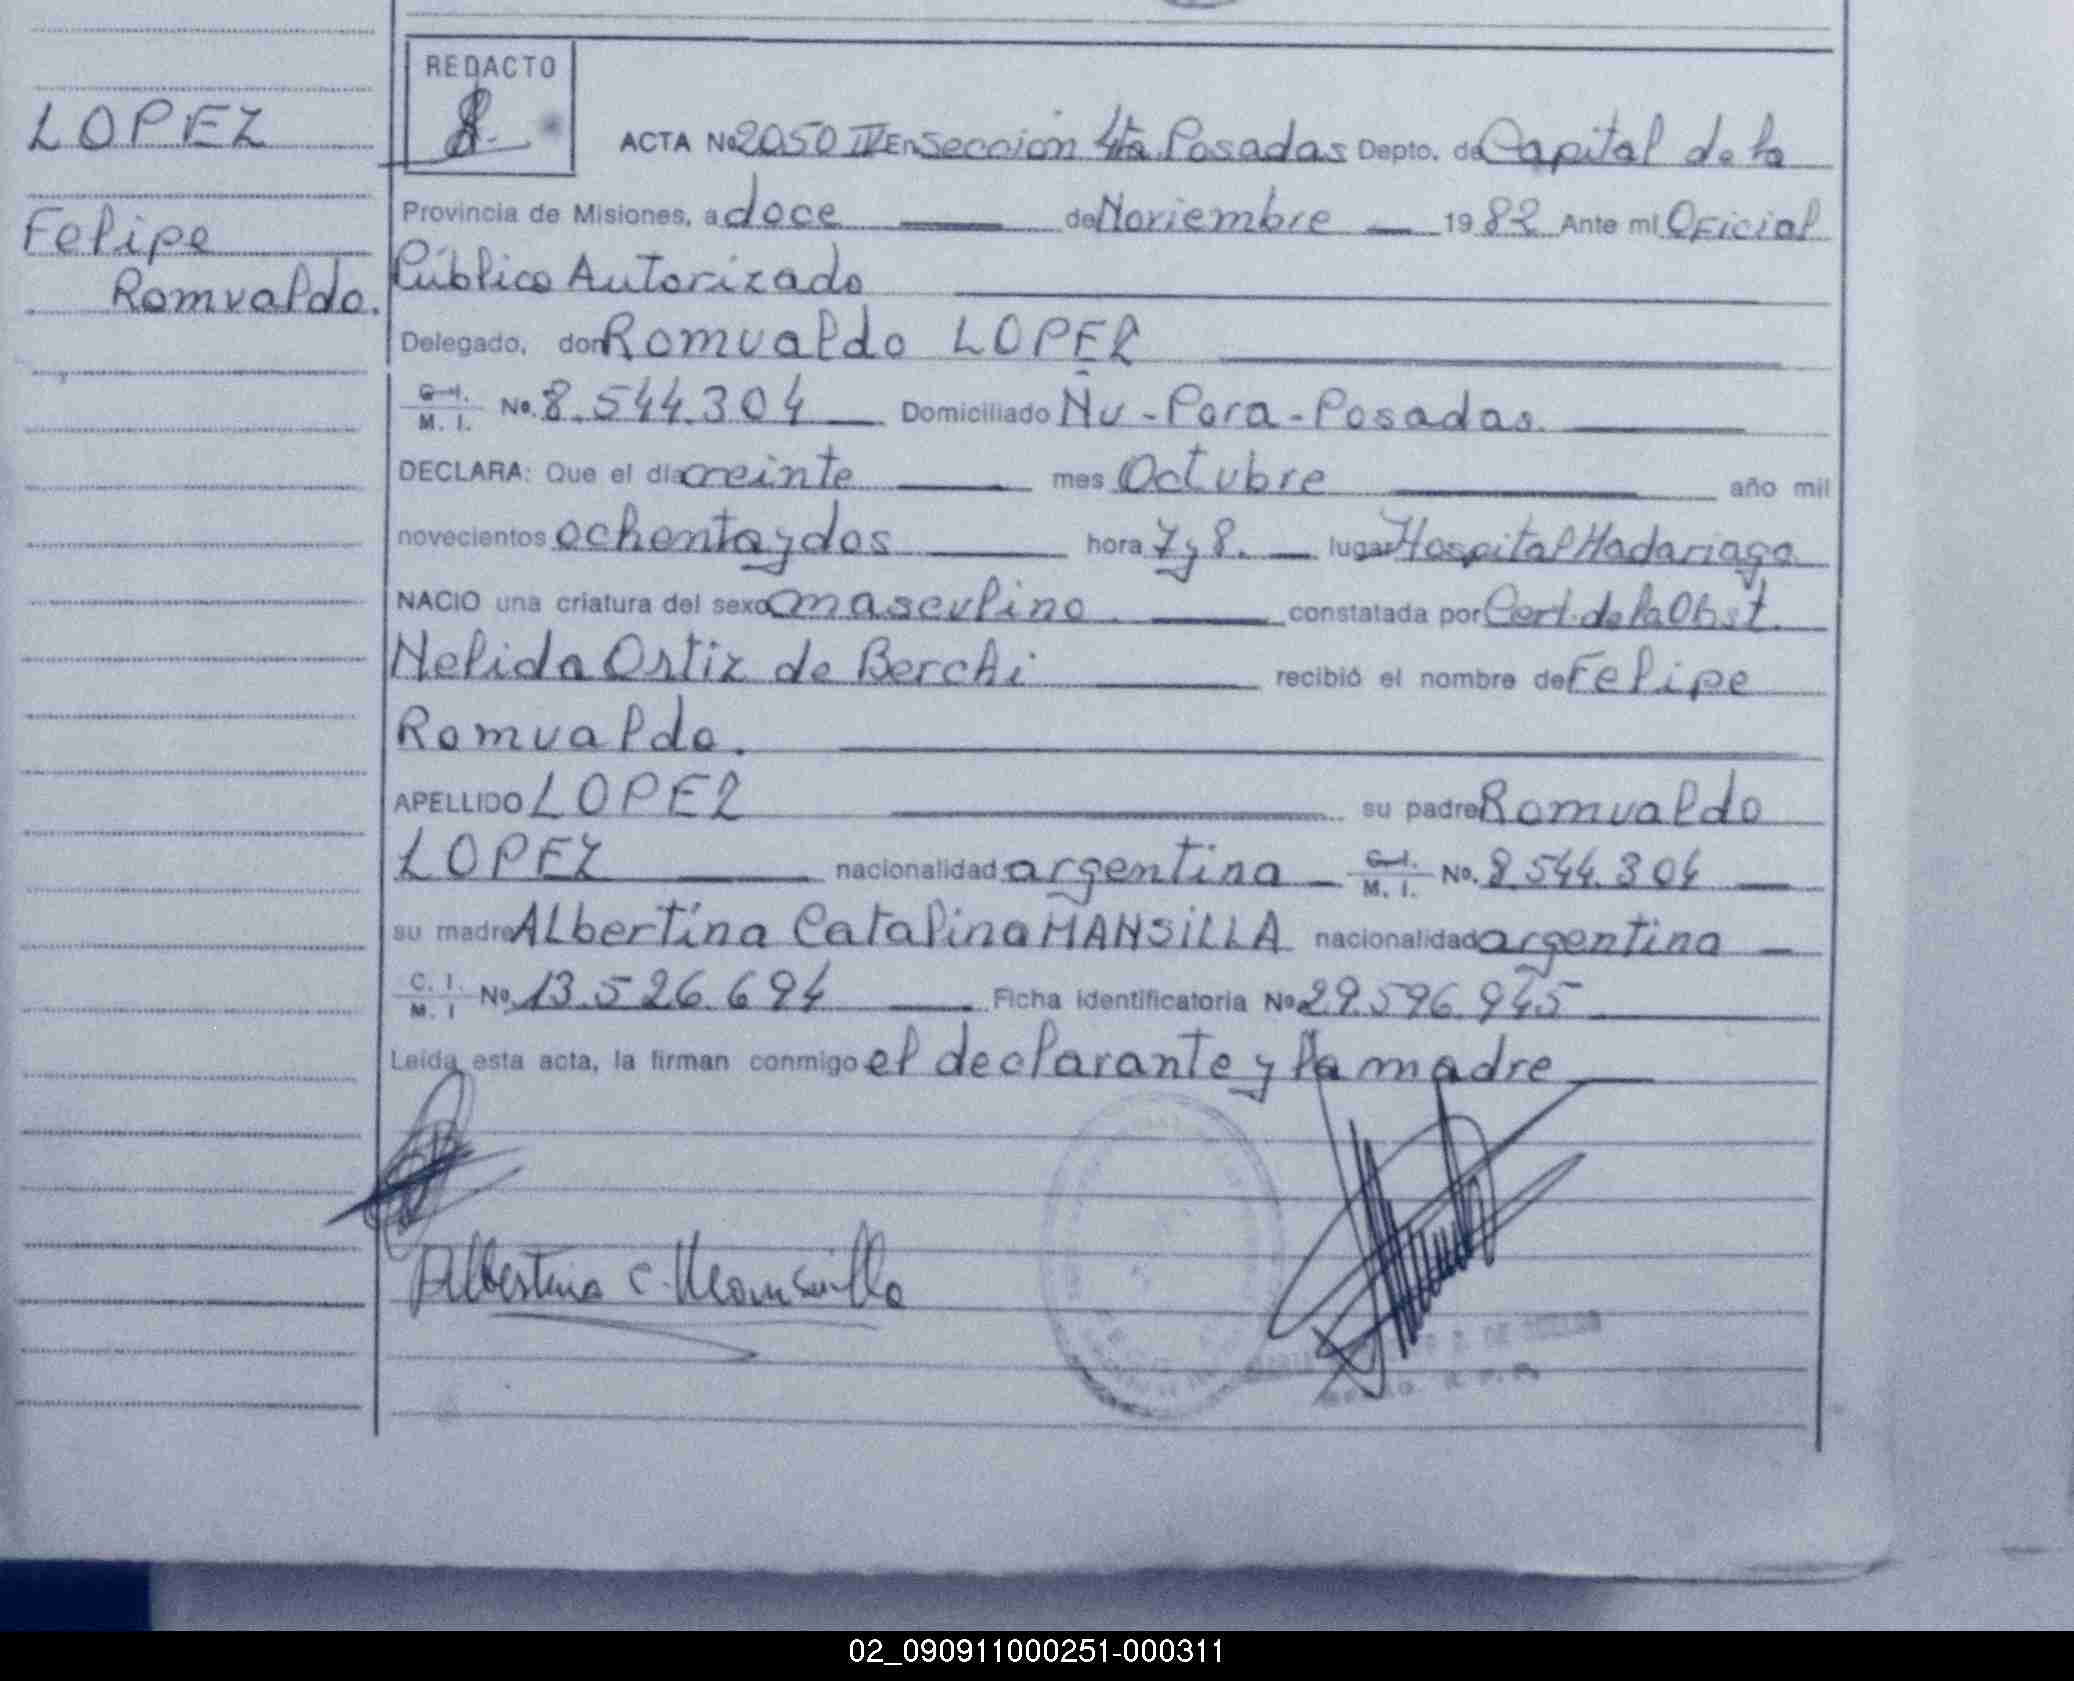 REDACTO
LOPEZ
ACTA No 2050 IV En Sección 4ta Posadas Depto. de Capital de la
Felipe
Provincia de Misiones, a doce de Noviembre 1982 Ante mi Oficial
Romualdo.
Público Autorizado
Delegado, don Romualdo LOPEZ
C. I. M. I. No. 8.544.304 Domiciliado Ñu-Pora-Posadas.
DECLARA: Que el dia veinte mes Octubre año mil
novecientos ochenta y dos hora 7 y 8. lugar Hospital Madariaga
NACIO una criatura del sexo masculino constatada por Cert. de la Obst.
Nelida Ortiz de Berchi recibió el nombre de Felipe
Romualdo.
APELLIDO LOPEZ su padre Romualdo
LOPEZ nacionalidad argentina C. I. M. I. No. 8.544.304
su madre Albertina Catalina MANSILLA nacionalidad argentina
C. I. M. I No. 13.526.694 Ficha identificatoria No 29.596.945
Leida esta acta, la firman conmigo el declarante y la madre
Albertina C. Mansilla
02_090911000251-000311